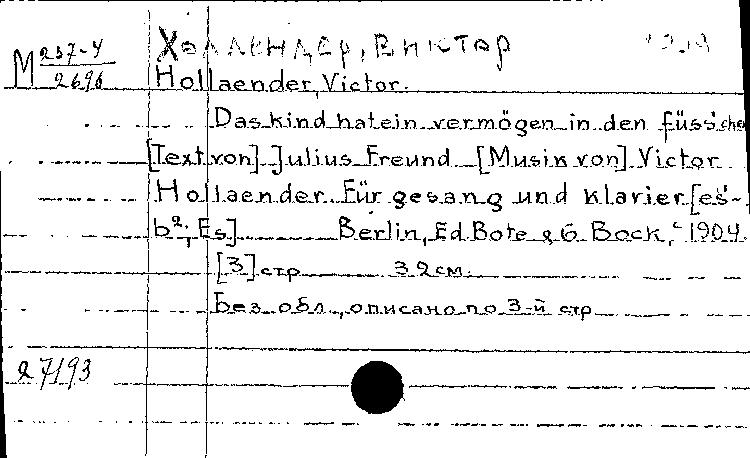 Холлендер, Виктор
М 257-4
2696
Hollaender, Victor.
Das kind hat ein vermögen in den füssche
[Text von] Julius Freund [Musik von] Victor
Hollaender. Für gesang und klavier [es'-
b²; Es] Berlin, Ed. Bote & G. Bock, ᶜ1904.
[3] стр 32 см.
Без обл., описано по 3-й стр
27193